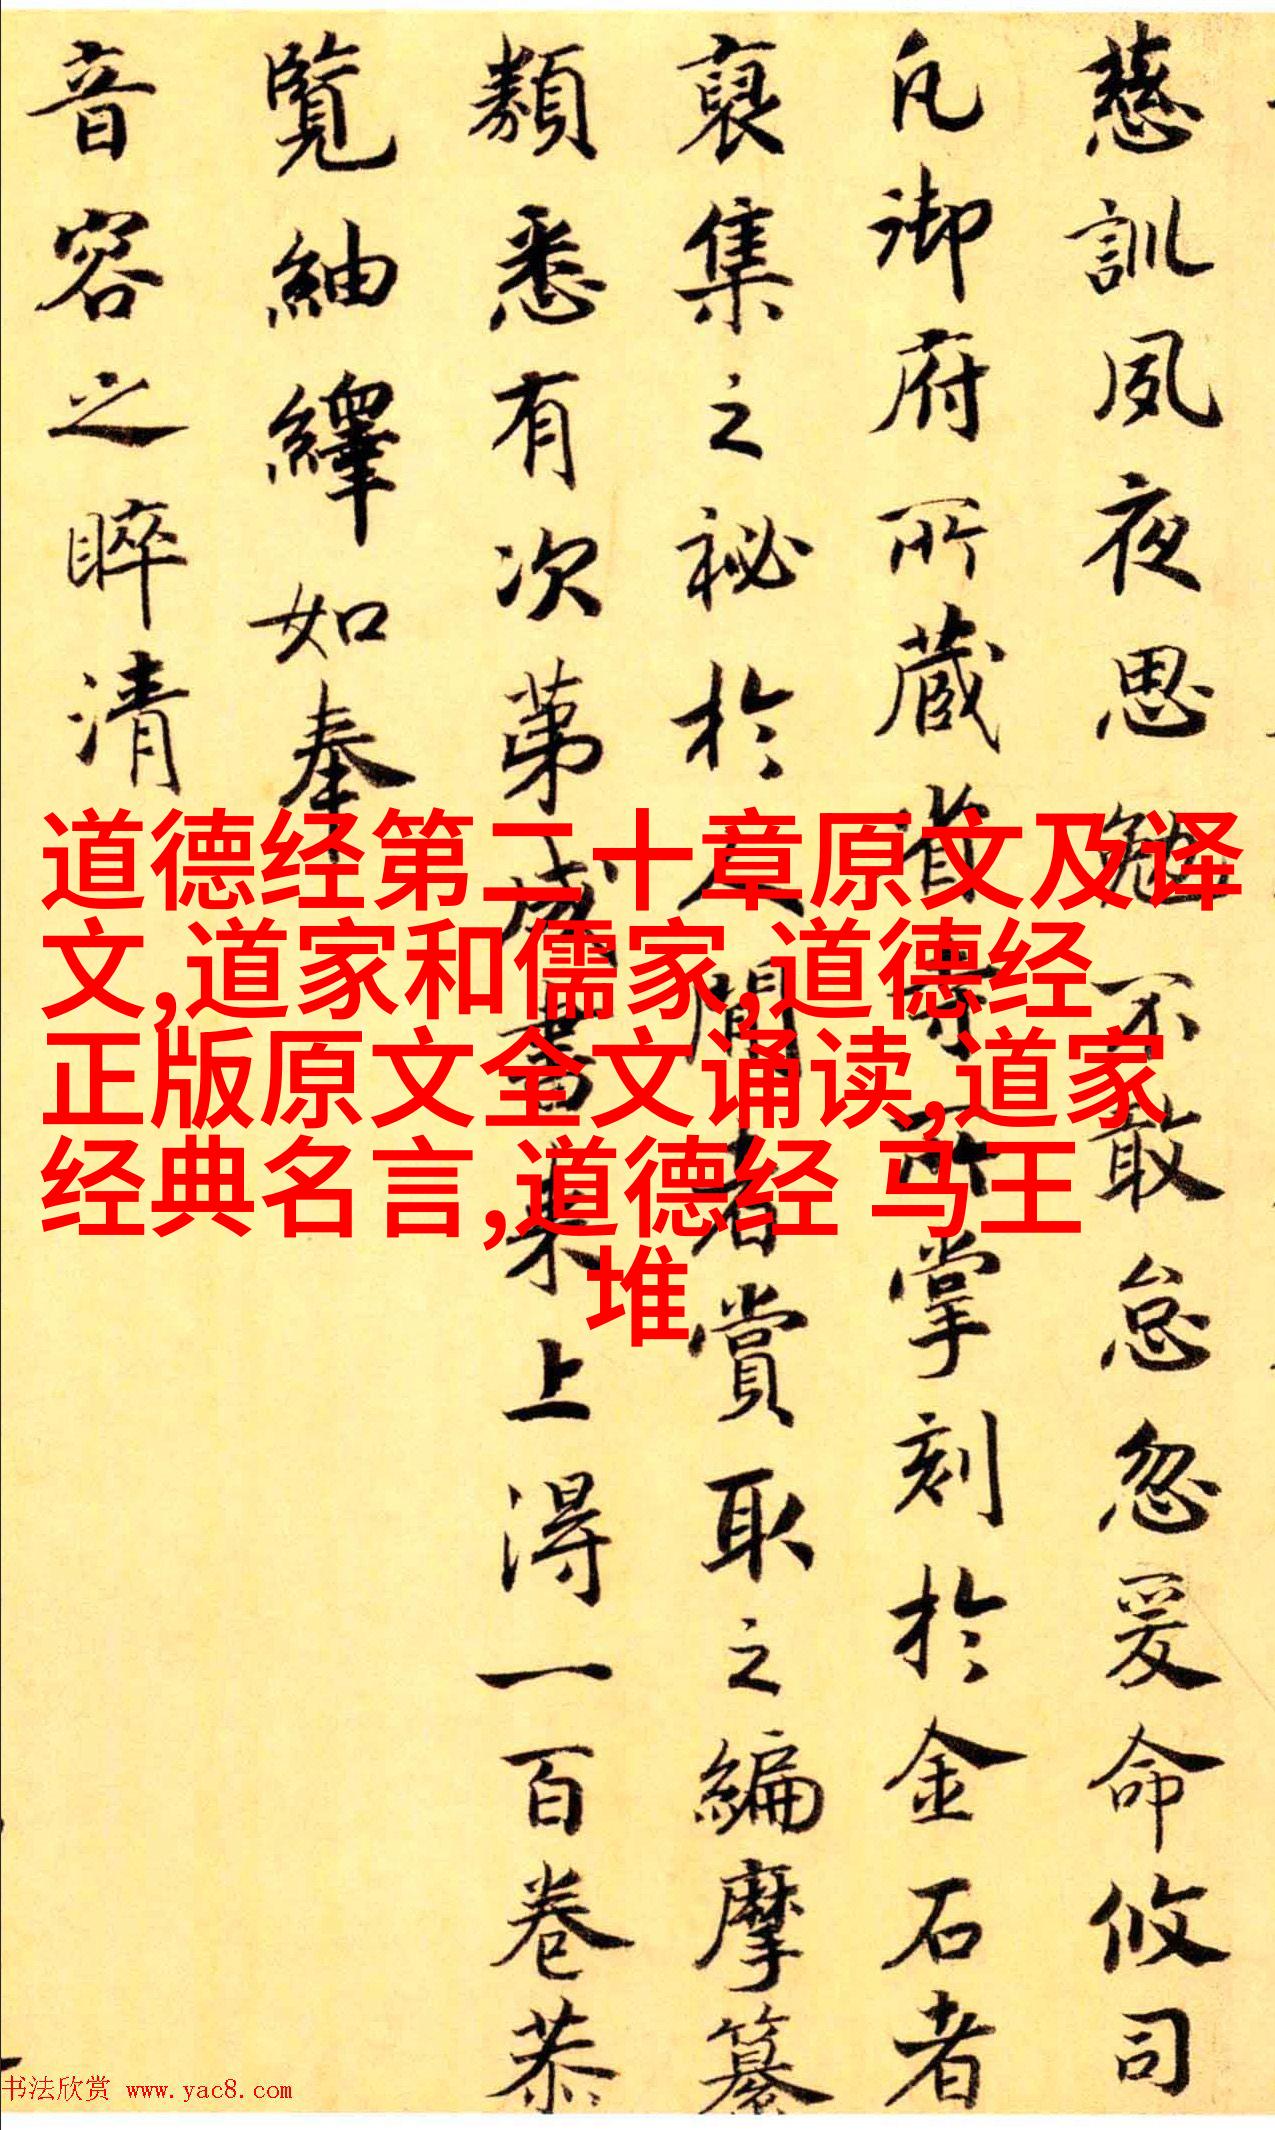 慈訓夙夜思勉不敢怠忽爰命攸司
凡御府所藏省寺所掌刻於金石者
裒集之祕於人間者賞取之編摩纂
類悉有次第成書來上得一百卷恭
覽紬繹如奉
音容之睟清
道德经第二十章原文及译
文,道家和儒家,道德经
正版原文全文诵读,道家
经典名言,道德经 马王
堆
书法欣赏 www.yac8.com